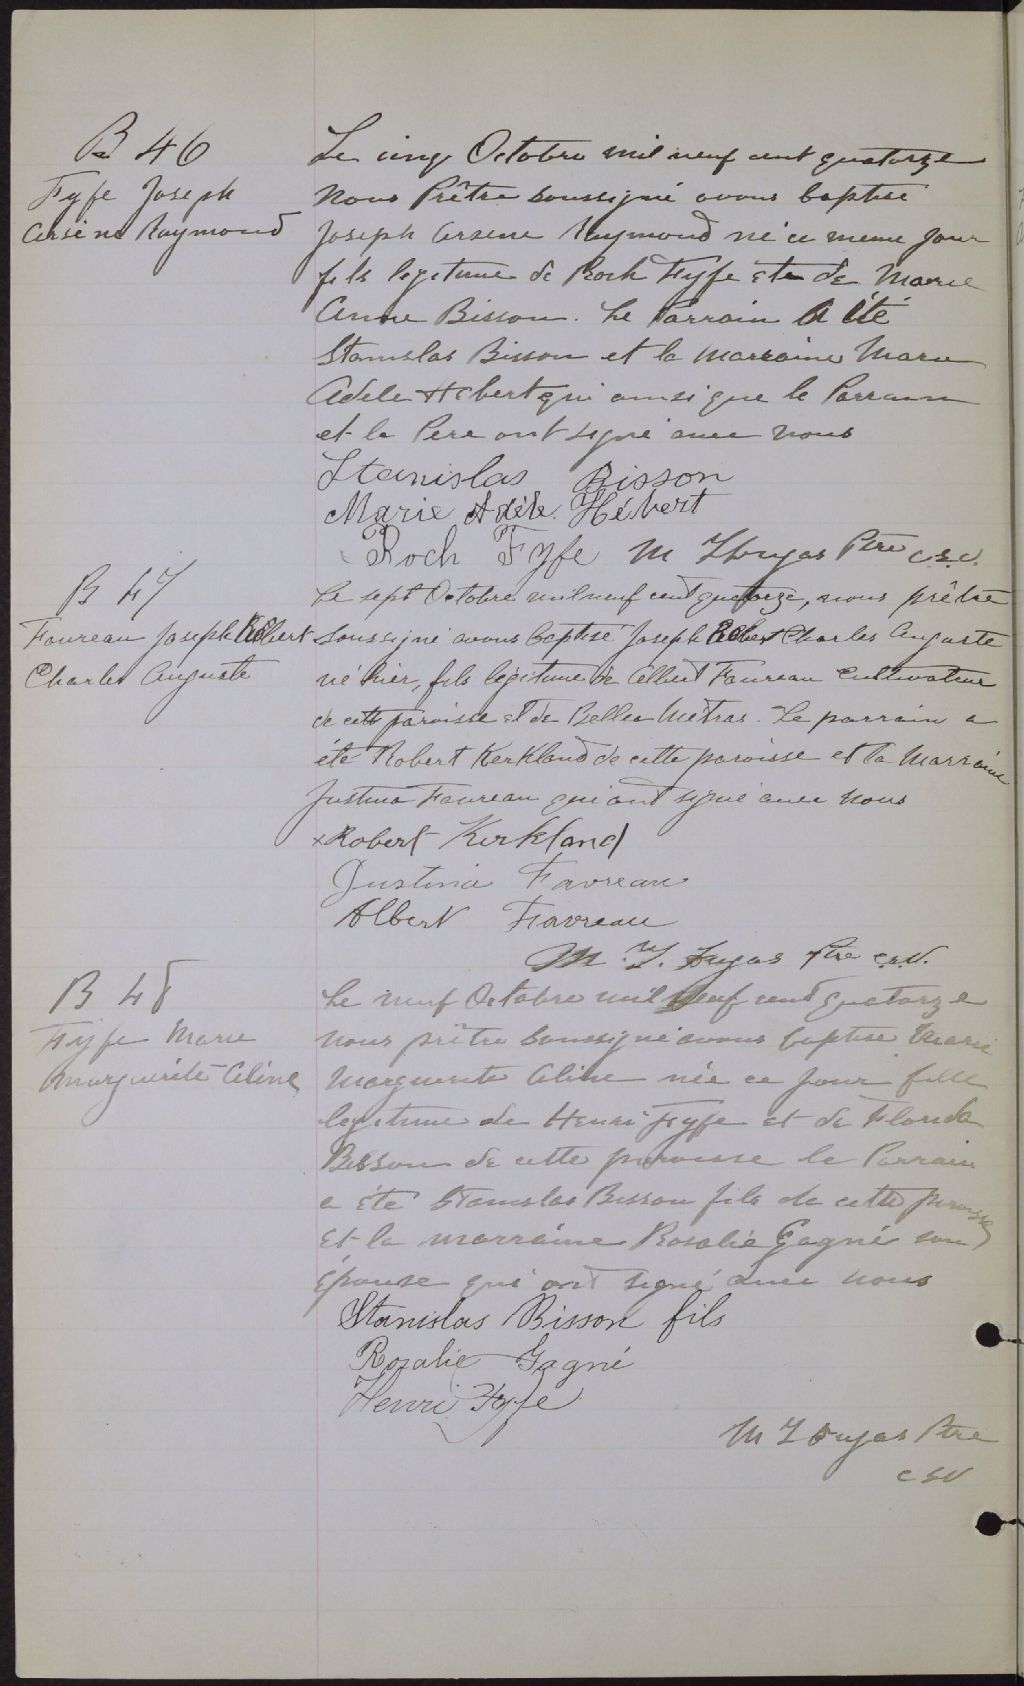 B 46
Fyfe Joseph
Arsène Raymond
Le cinq Octobre mil neuf cent quatorze
Nous Prêtre soussigné avons baptisé
Joseph Arsene Raymond né ce meme jour
fils legitime de Roch Fyfe et de Marie
Anne Bisson. Le Parrain a été
Stanislas Bisson et la marraine Marie
Adele Hebert qui ainsi que le Parrain
et le Père ont signé avec nous
Stanislas Bisson
Marie Adèle Hébert
Roch Fyfe M Dugas Ptre c.s.v.
B 47
Favreau Joseph Robert
Charles Auguste
Le sept Octobre mil neuf cent quatorze, nous prêtre
soussigné avons baptisé Joseph Robert Charles Auguste
né hier, fils légitime de Albert Favreau Cultivateur
de cette paroisse et de Bella Métras. Le parrain a
été Robert Kerkland de cette paroisse et la Marraine
Justina Favreau qui ont signé avec nous
x Robert Kirkland
Justina Favreau
Albert Favreau
M. Dugas Ptre c.s.v.
B 48
Fyfe Marie
Marguerite Aline
Le neuf Octobre mil neuf cent quatorze
nous prêtre soussigné avons baptisé Marie
Marguerite Aline née ce jour fille
legitime de Henri Fyfe et de Florida
Bisson de cette paroisse le Parrain
a été Stanislas Bisson fils de cette paroisse
et la marraine Rosalie Gagné son
épouse qui ont signé avec nous
Stanislas Bisson fils
Rosalie Gagné
Henri Fyfe
M Dugas Ptre
csv